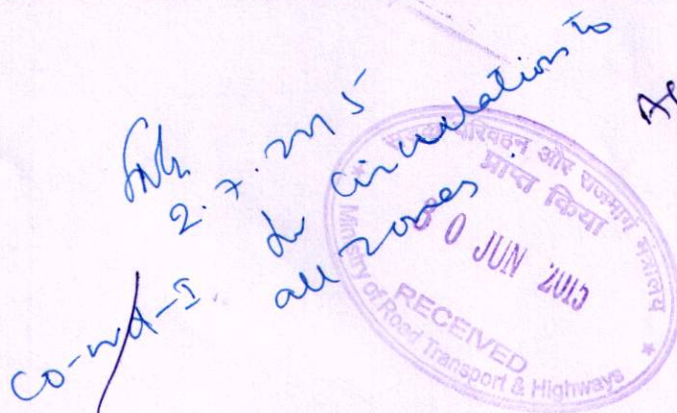 2.7.2015
Co-ord-I. for circulation to
all zones.
सड़क परिवहन और राजमार्ग मंत्रालय
प्राप्त किया
30 JUN 2015
RECEIVED
Ministry of Road Transport & Highways